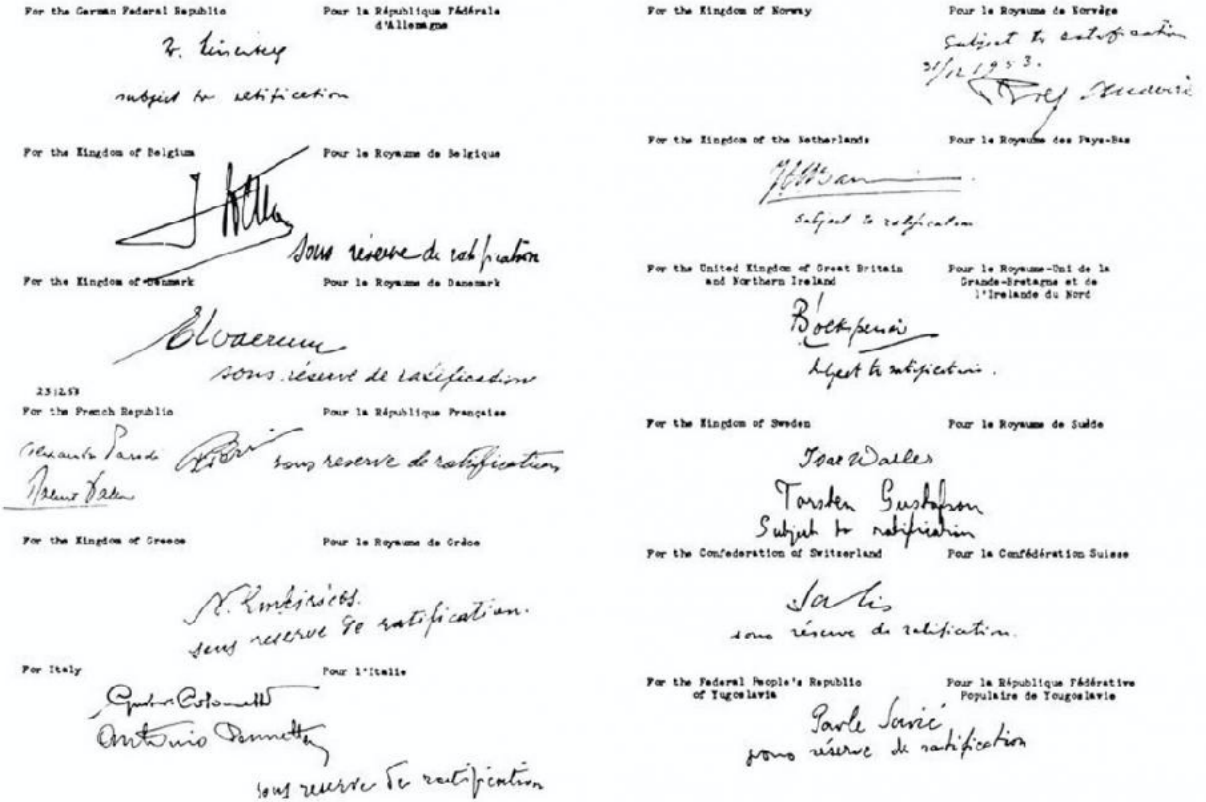 For the German Federal Republic Pour la République Fédérale
d'Allemagne
subject to ratification
For the Kingdom of Belgium Pour le Royaume de Belgique
sous réserve de ratification
For the Kingdom of Denmark Pour le Royaume de Danemark
sous réserve de ratification
231253
For the French Republic Pour la République Française
Alexandre Parodi sous reserve de ratification
For the Kingdom of Greece Pour le Royaume de Grèce
sous reserve de ratification.
For Italy Pour l'Italie
Gustavo Colonnetti
Antonio Pennetta
sous reserve de ratification
For the Kingdom of Norway Pour le Royaume de Norvège
Subject to ratification
31/12 1953.
Rolf
For the Kingdom of the Netherlands Pour le Royaume des Pays-Bas
subject to ratification
For the United Kingdom of Great Britain Pour le Royaume-Uni de la
and Northern Ireland Grande-Bretagne et de
l'Irelande du Nord
subject to ratification.
For the Kingdom of Sweden Pour le Royaume de Suède
Ivar Waller
Torsten Gustafson
Subject to ratification
For the Confederation of Switzerland Pour la Confédération Suisse
Salis
sous réserve de ratification.
For the Federal People's Republic Pour la République Fédérative
of Yugoslavia Populaire de Yougoslavie
Pavle Savić
sous réserve de ratification